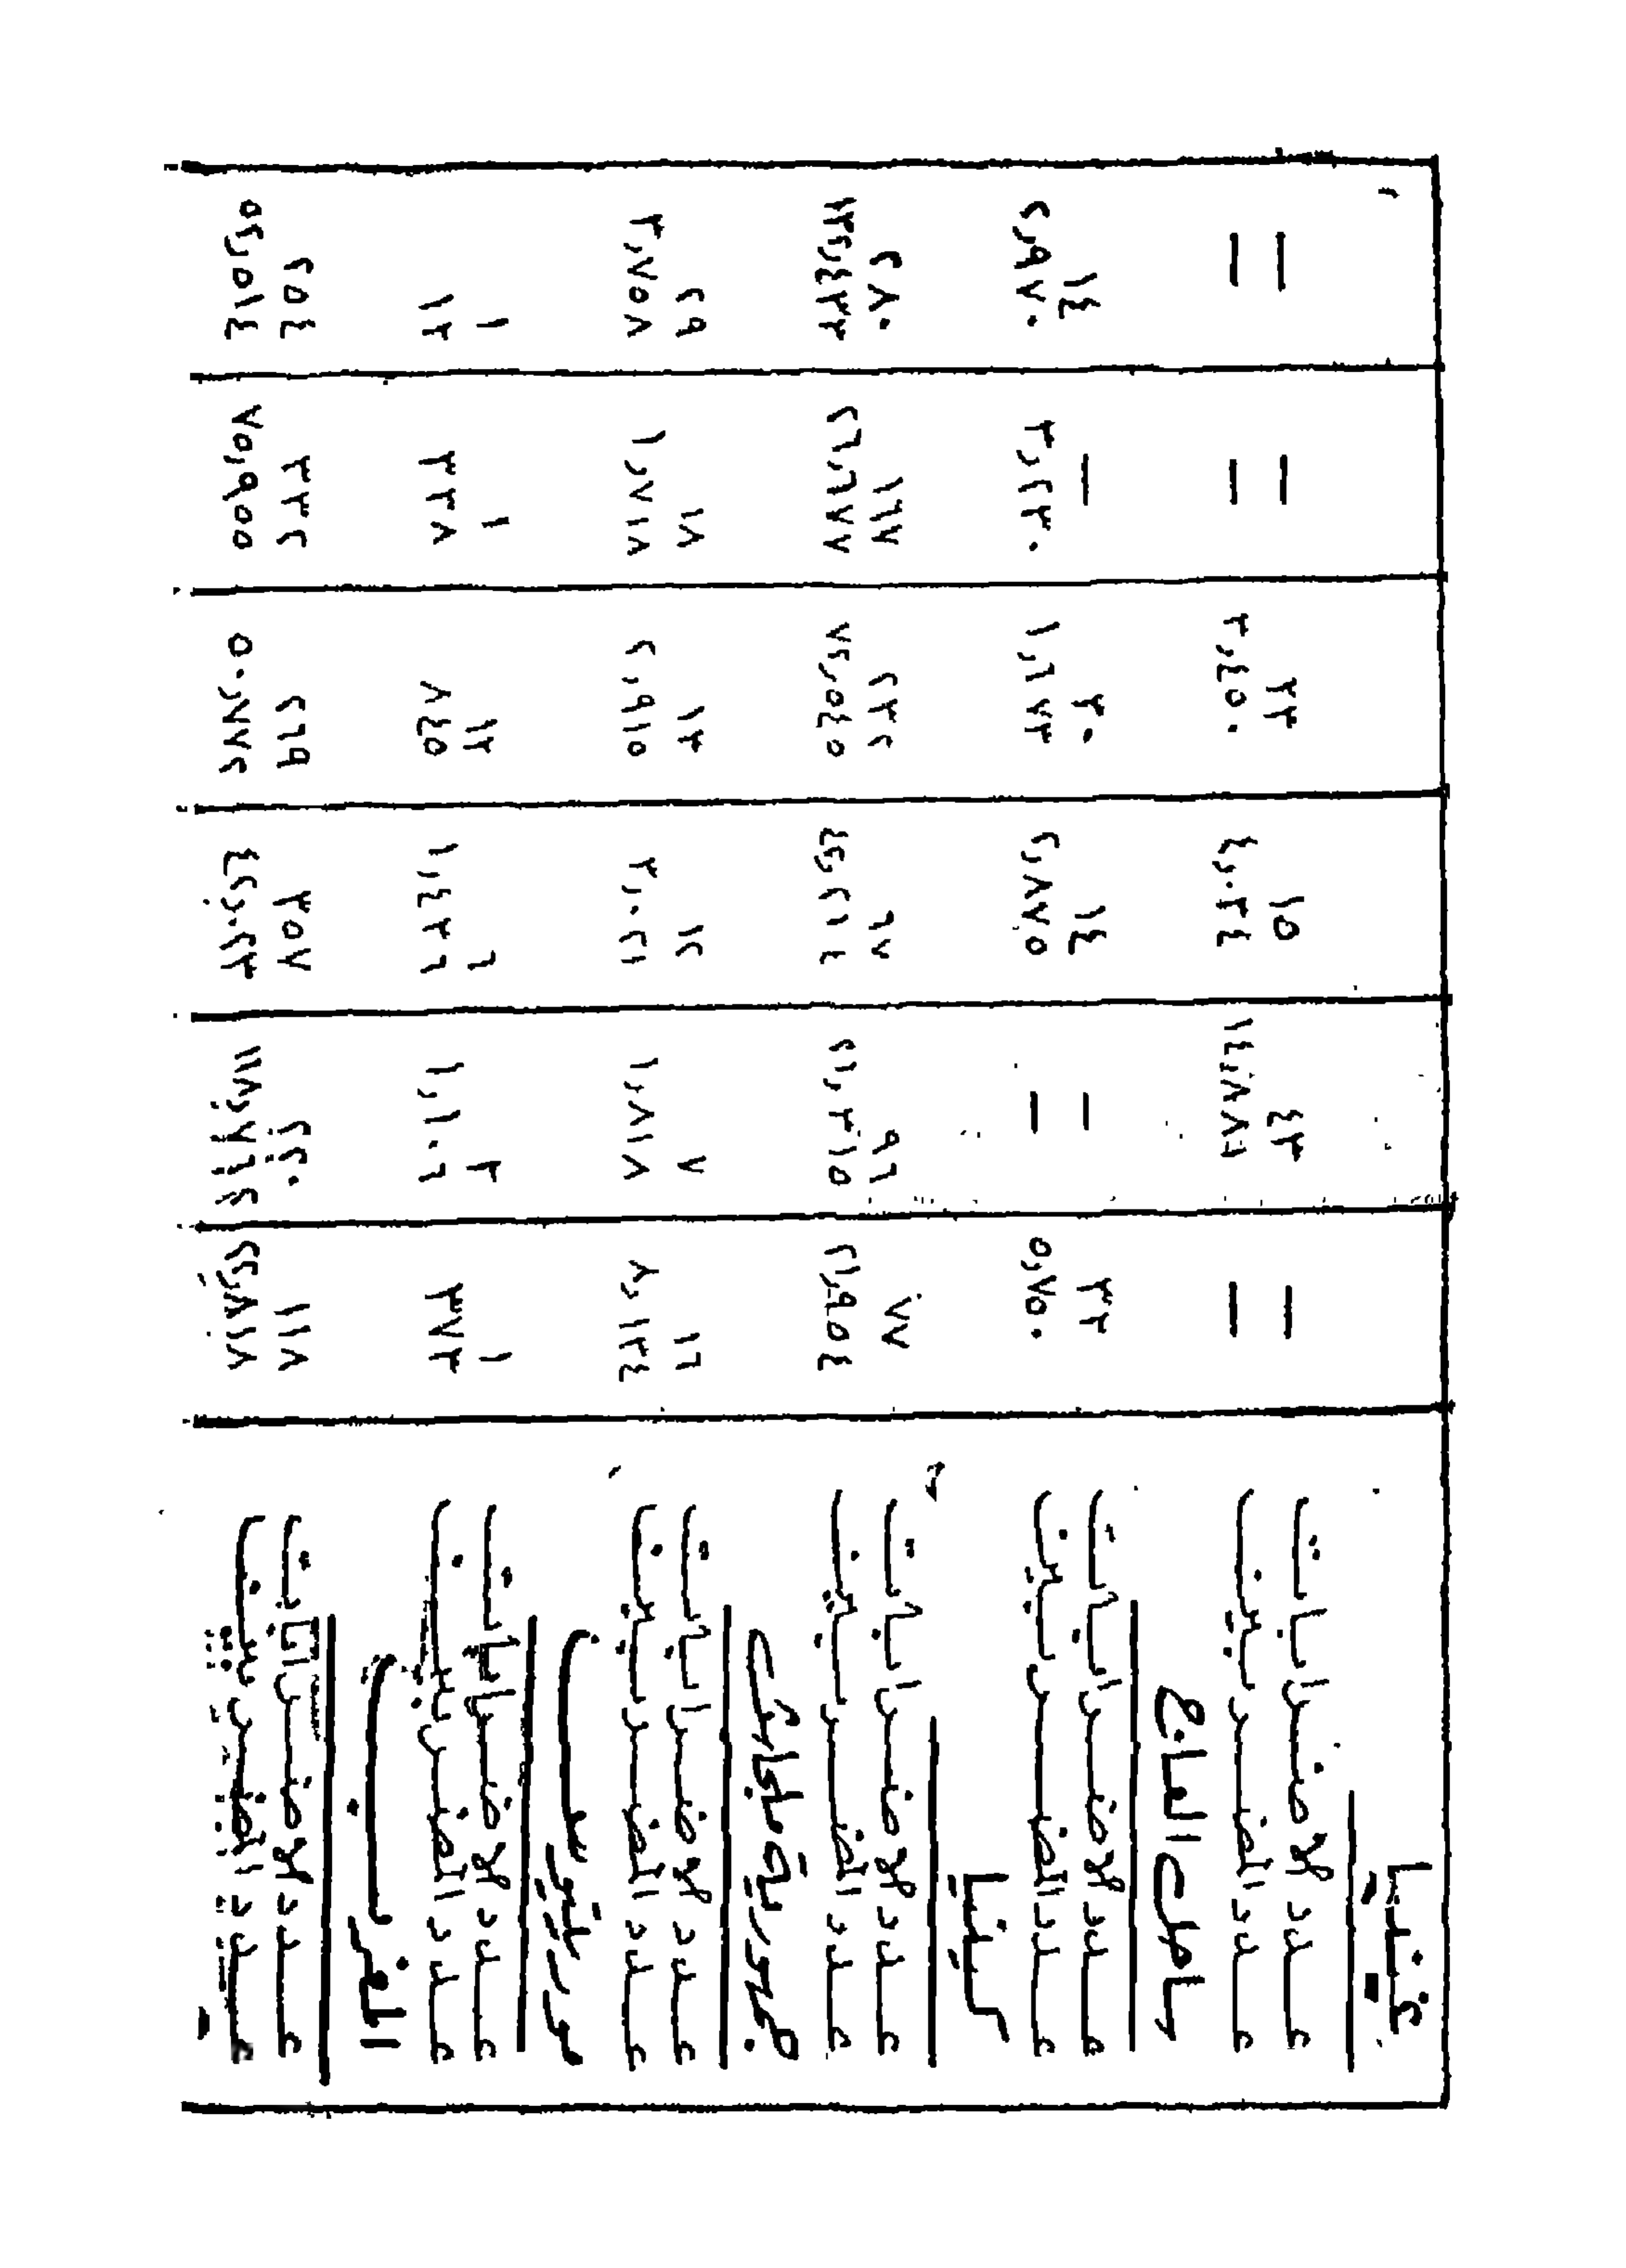 غينيا
عدد الاضرابات — ٤٣ ١٥ ٣٣ — —
عدد المضربين — ١٤,٨٨٦ ٤,٠٣٤ ٣,٤٥٠ — —
ساحل العاج
عدد الاضرابات ٣٢ — ١٤ ٣٠ — ١٤
عدد المضربين ٥,٧٥٠ — ٢,٨٧٥ ١,٦٧٣ ٣,٢٣٠ ٢,٩٧٠
كينيا
عدد الاضرابات ٧٧ ٩٦ ٦٧ ٢٣٢ ١٦٧ ٢٨٠
عدد المضربين ٢١,٩٥٤ ٢١,٣١٥ ٧٢,٥٤٥ ٢٦,٦٧٧
جمهورية ملجاشى
عدد الاضرابات ١٦ ٧ ١٢ ١٣ ١٨ ٢٩
عدد المضربين ٨,١٣٤ ١,٨١٨ ٣,٠٢١ ٢,٩١٥ ١,٧١٨ ٣,٧٥٨
موريتيوس
عدد الاضرابات ١ ٣ ٦ ١٣ ١ ١
عدد المضربين ٣٧٣ ١,١٠٦ ١,٤٣٦ ٨٤٥ ٣٣٨ ١٣
المغرب
عدد الاضرابات ١١٨ ٢٢٠ ٣٥٧ ٢٦٩ ٣٣٢ ٢٥٤
عدد المضربين ٥٠,٨٧٢ ٧٥,٩٥٥ ٥٢,٥١٤